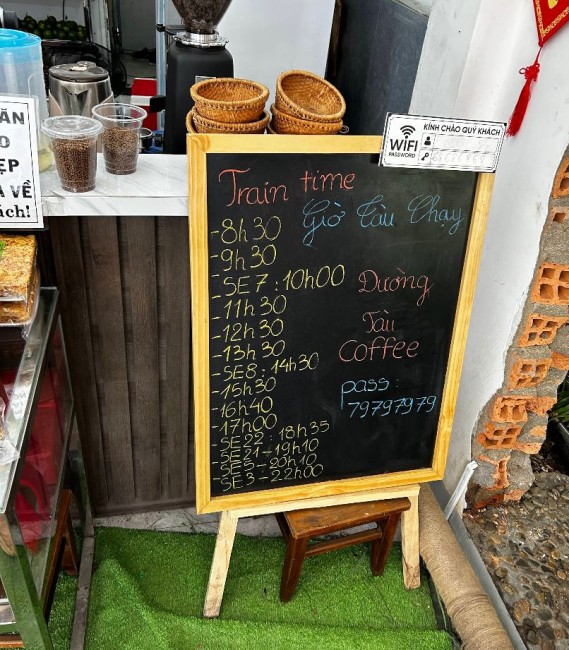 ĂN
O
ẸP
À VỀ
ách!
WIFI
PASSWORD
KÍNH CHÀO QUÝ KHÁCH
Train time
Giờ Tàu Chạy
-8h30
-9h30
-SE7:10h00
-11h30
-12h30
-13h30
-SE8:14h30
-15h30
-16h40
-17h00
-SE22:18h35
-SE21-19h10
-SE5-20h10
-SE3-22h00
Dường
Tàu
COFFEE
pass:
79797979